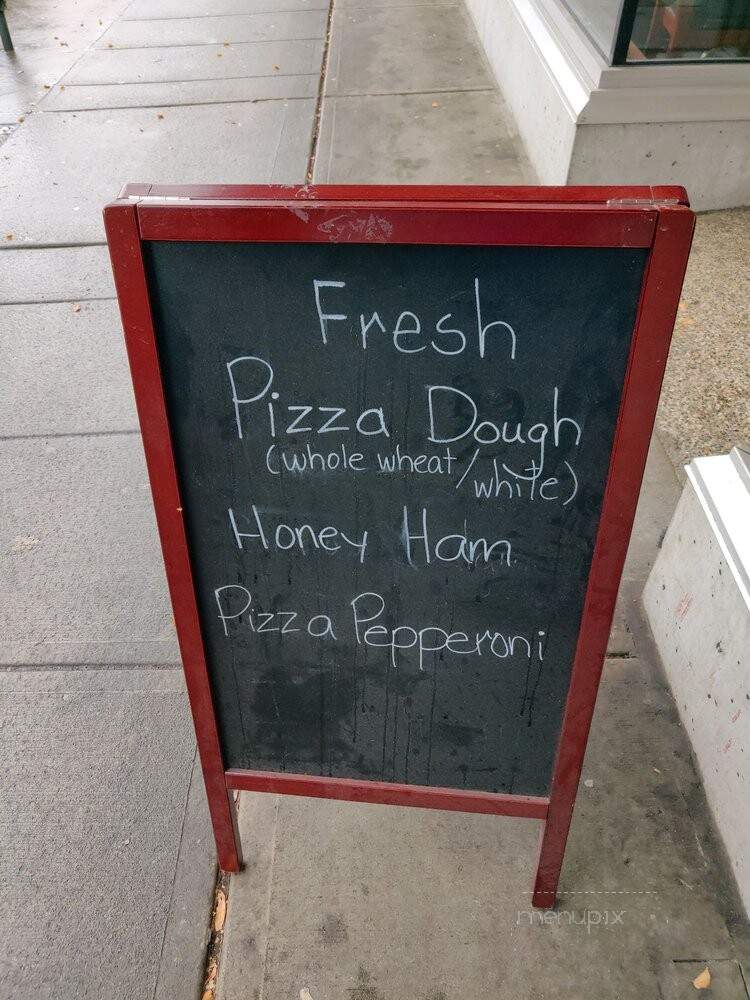 Fresh
Pizza Dough
(whole wheat/white)
Honey Ham
Pizza Pepperoni
menupix